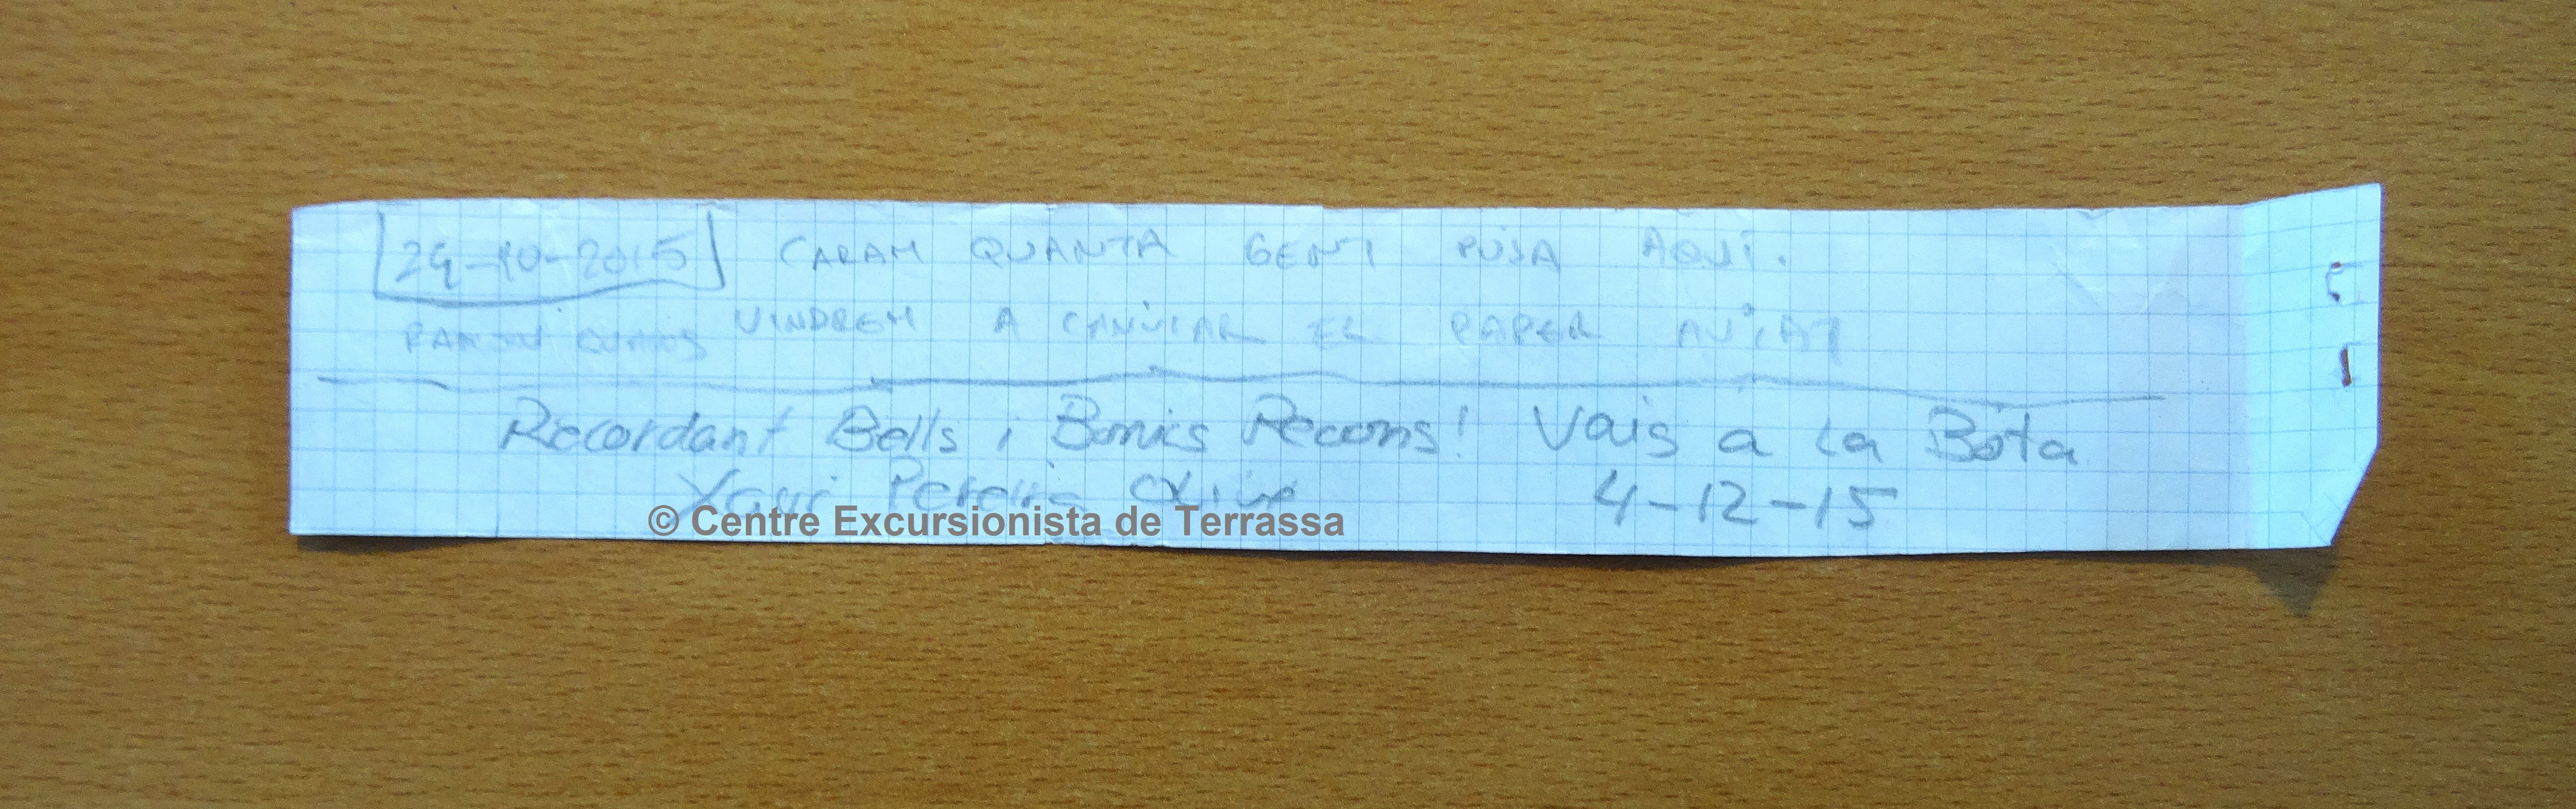 24-10-2015 CARAM QUANTA GENT PUJA AQUÍ.
VINDREM A CANVIAR EL PAPER AVIAT
Recordant Bells i Bonics Recons! Vais a la Bota
Xavi 4-12-15
© Centre Excursionista de Terrassa